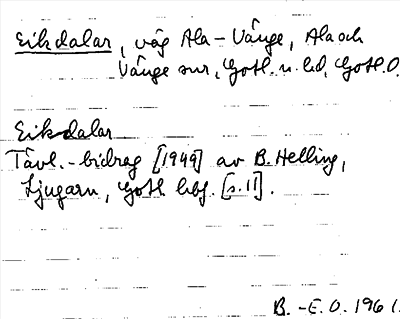 Eikdalar, väg Ala-Vänge, Ala och
Vänge snr, Gotl. n. hd, Gotl.
Eikdalar
Tävl.-bidrag [1949] av B. Helling,
Ljugarn, Gotl. [s.11].
B.-E.O. 1961.